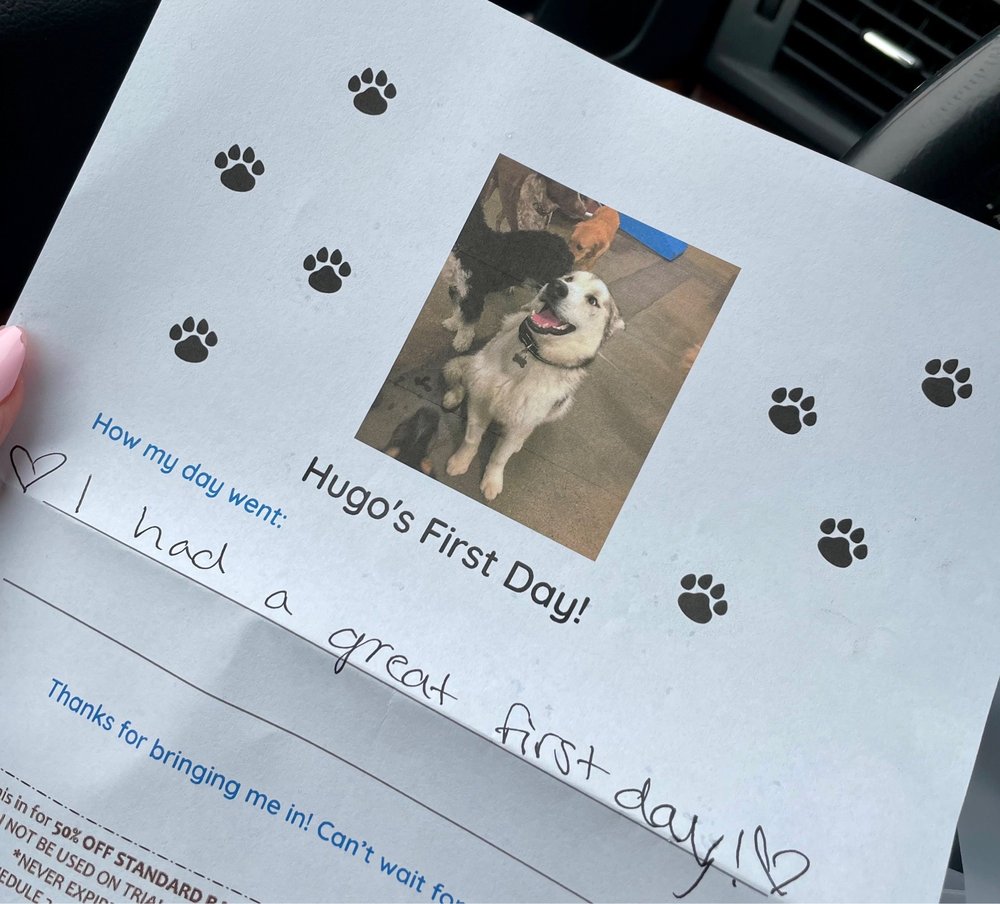 Hugo's First Day!
How my day went:
♡ I had a great first day! ♡
Thanks for bringing me in! Can't wait
in for 50% OFF STANDARD
NOT BE USED ON
*NEVER